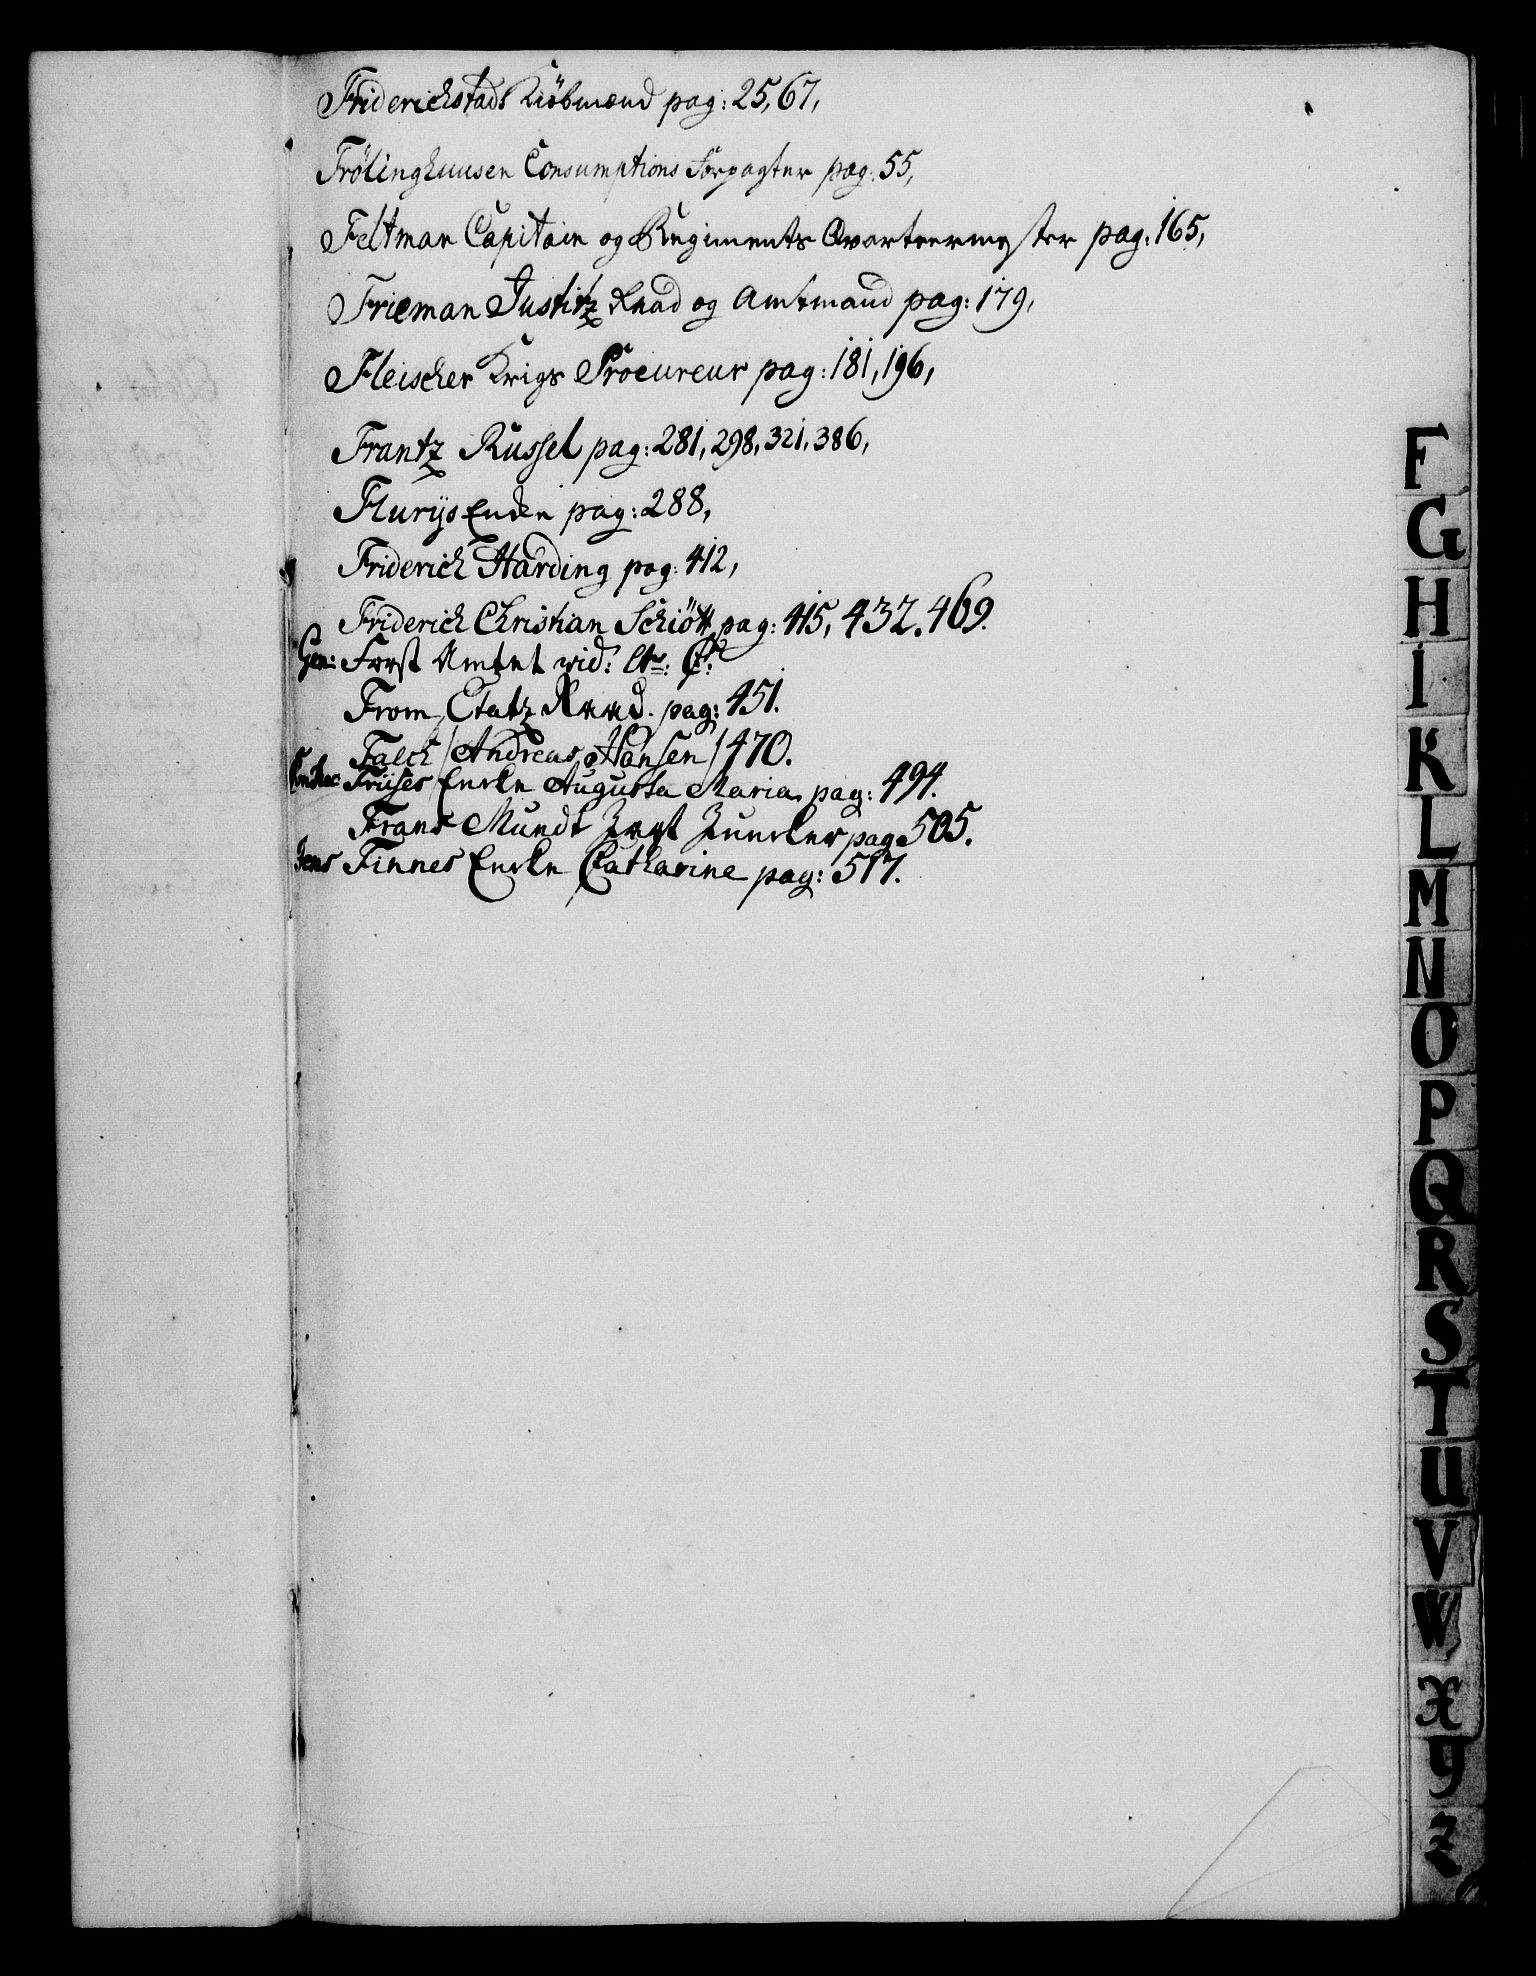 Friderichstads Kiöbmænd pag: 25, 67,
Frölinghuusen Consumptions Forpagter pag: 55,
Feltman Capitain og Regiments Qvarteermester pag: 165,
Frieman Justitz Raad og Amtmand pag: 179,
Fleischer Krigs Procureur pag: 181, 196,
Frantz Russel pag: 281, 298, 321, 386,
Flurÿs Encke pag: 288,
Friderich Harding pag: 412,
Friderich Christian Schiött pag: 415, 432. 469.
Gen: Forst Amtet vid:
From, Etatz Raad. pag: 451.
Falch /Andreas Hansen/ 470.
Friises Encke Augusta Maria pag: 494.
Frans Mundt Jagt Juncker pag 505.
Jens Finnes Encke Catharine pag: 517.
F
G
H
I
K
L
M
N
O
P
Q
R
S
T
U
V
W
X
Y
Z